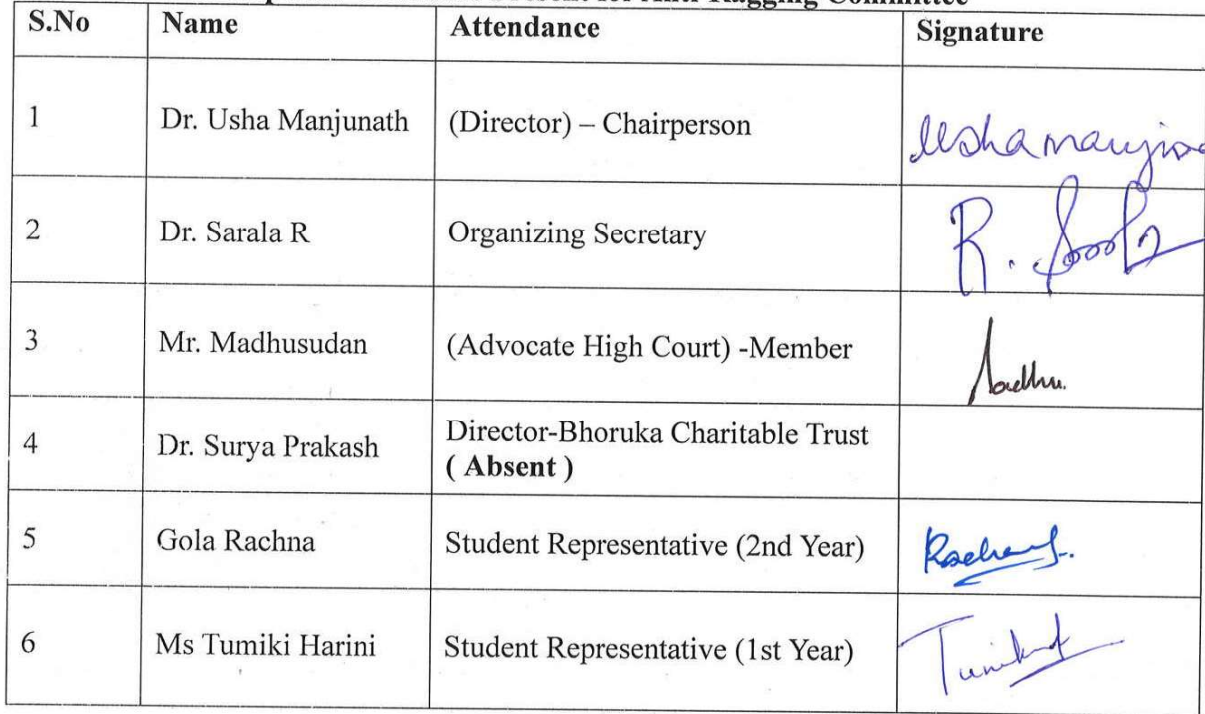 Present for Anti-Ragging Committee
S.No Name Attendance Signature
1 Dr. Usha Manjunath (Director) – Chairperson
2 Dr. Sarala R Organizing Secretary
3 Mr. Madhusudan (Advocate High Court) -Member
4 Dr. Surya Prakash Director-Bhoruka Charitable Trust
( Absent )
5 Gola Rachna Student Representative (2nd Year)
6 Ms Tumiki Harini Student Representative (1st Year)